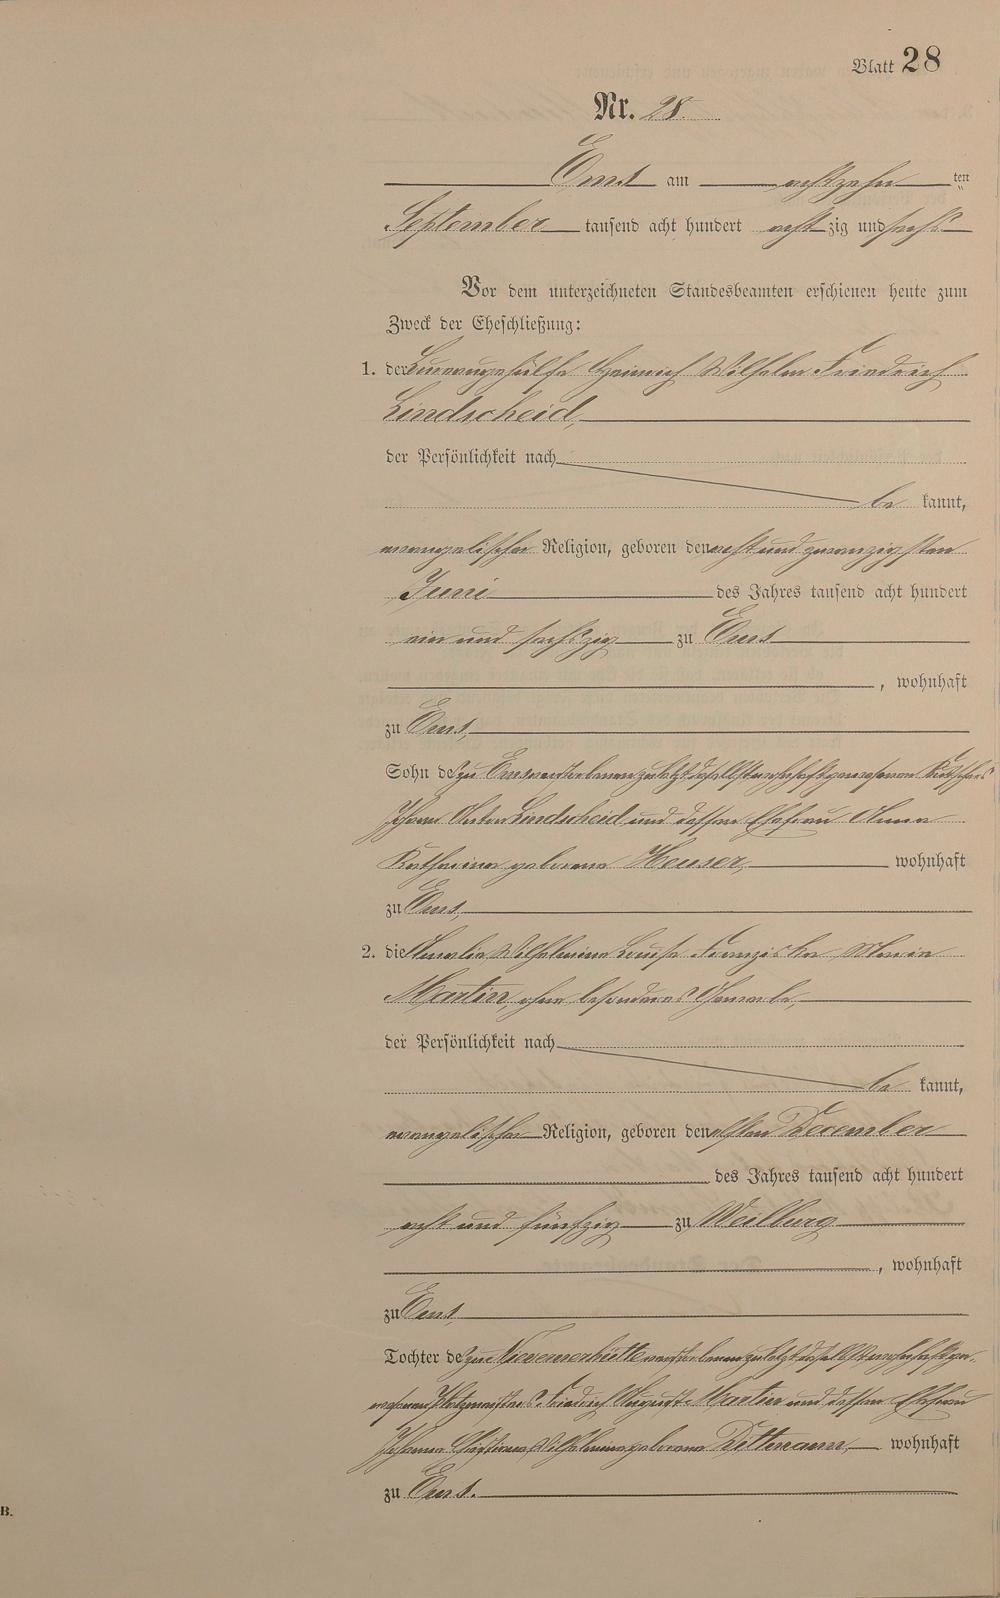 Blatt 28
Nr. 28.
Ems am achtzehn ten
September tausend acht hundert acht zig und sechs
Vor dem unterzeichneten Standesbeamten erschienen heute zum
Zweck der Eheschließung:
1. der Heinrich Wilhelm Friedrich
Lindscheid,
der Persönlichkeit nach
be kannt,
evangelischer Religion, geboren den acht und zwanzigsten
Juni des Jahres tausend acht hundert
ein und sechszig zu Ems
, wohnhaft
zu Ems,
Sohn des zu Ems verstorbenen zuletzt daselbst wohnhaft gewesenen Kutschers
Johann Anton Lindscheid und dessen Ehefrau Anna
Katharina geborene Heuser, wohnhaft
zu Ems,
2. die Amalie Wilhelmine Louise Franziska Maria
Martin, ohne besonderes Gewerbe,
der Persönlichkeit nach
be kannt,
evangelischer Religion, geboren den elften December
des Jahres tausend acht hundert
acht und fünfzig zu Weilburg
, wohnhaft
zu Ems,
Tochter des zu Nievernerhütte verstorbenen zuletzt daselbst wohnhaft ge-
wesenen Friedrich August Martin und dessen Ehefrau
Johanna Wilhelmine geborene Dittmann, wohnhaft
zu Ems.
B.